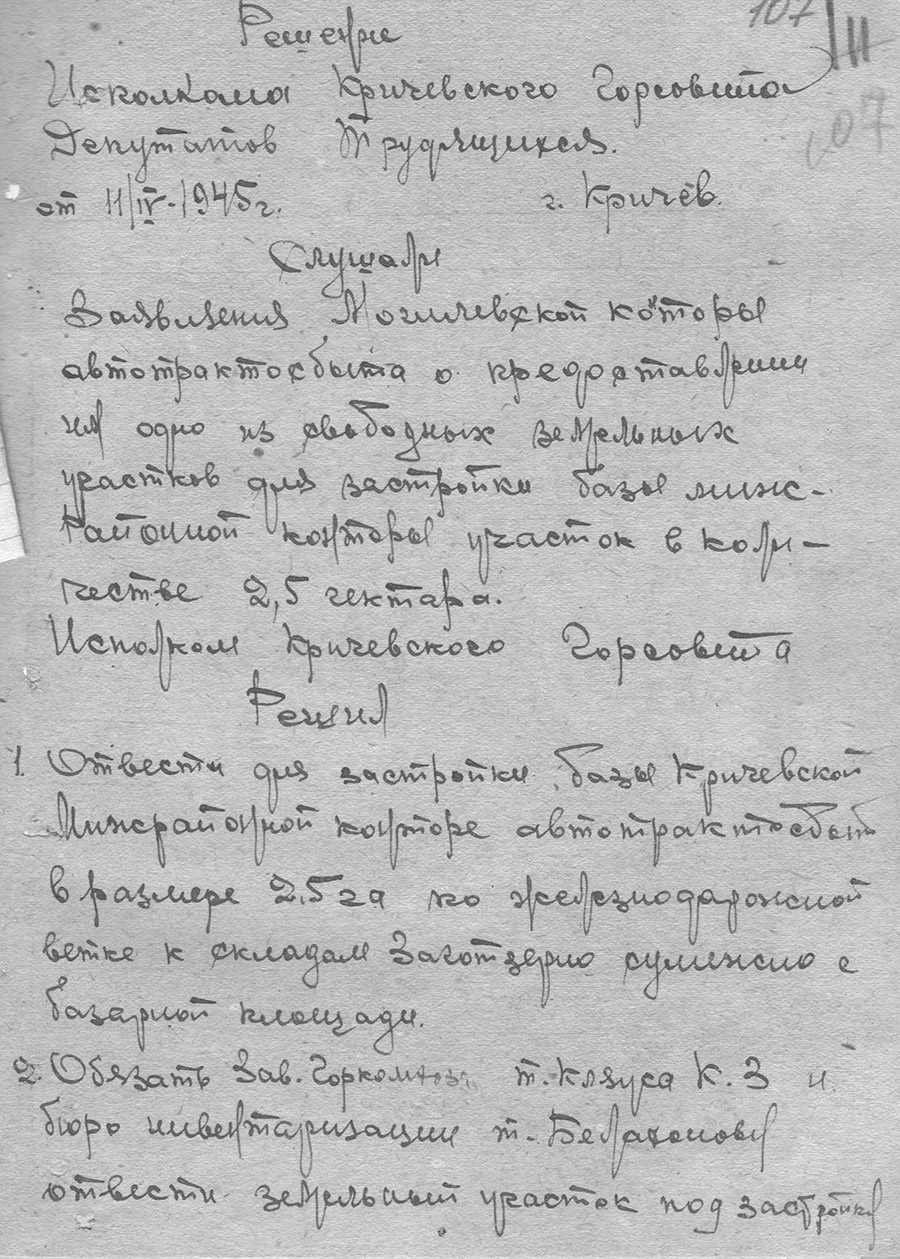 107
111
107
Решени
Исколкома Кричевского Горсовита
Депутатов Трудящихся.
от 11/IV-1945г. г. Кричев.
Слушали
Заявления Могилевской которы
автотрактосбыта о предоставлении
им одно из свободных земельных
участков для застройки базы миж-
районной конторы участок в коли-
честве 2,5 гектара.
Исполком Кричевского Горсовита
Решил
1. Отвести для застройки базы Кричевской
Мижрайонной конторе автотрактосбыт
в размере 2,5 га по железнодарожной
ветке к складам Заготзерно сумижно с
базарной площади.
2. Обязать Зав. Горкомхоза т. Кляуса К. З и
бюро инвентаризации т.
отвести земельный участок под застройку